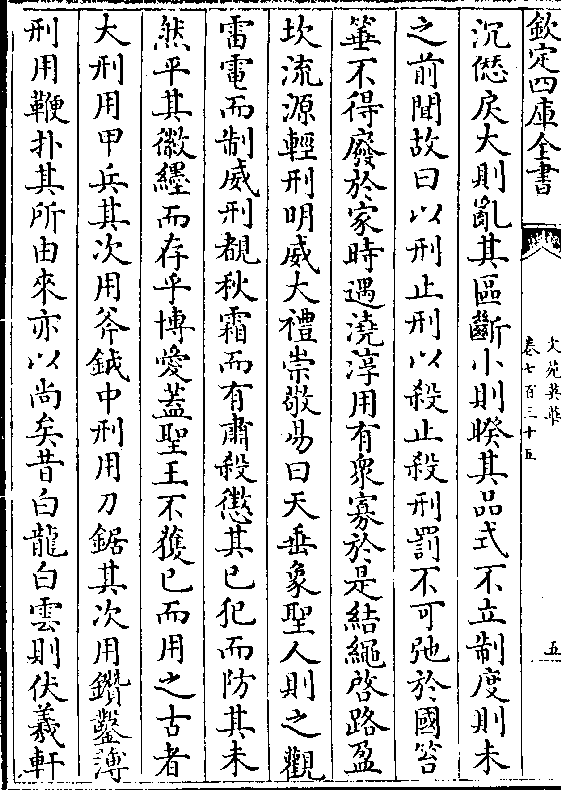 欽定四庫全書
文苑英華
卷七百三十五
五
沉愆戾大則亂其區斷小則暌其品式不立制度則未
之前聞故曰以刑止刑以殺止殺刑罰不可弛於國笞
箠不得廢於家時遇澆淳用有衆寡於是結繩啓路盈
坎流源輕刑明威大禮崇敬易曰天垂象聖人則之觀
雷電而制威刑覩秋霜而有肅殺懲其已犯而防其未
然平其徽纆而存乎博愛蓋聖王不獲已而用之古者
大刑用甲兵其次用斧鉞中刑用刀鋸其次用鑽鑿薄
刑用鞭扑其所由來亦以尚矣昔白龍白雲則伏羲軒